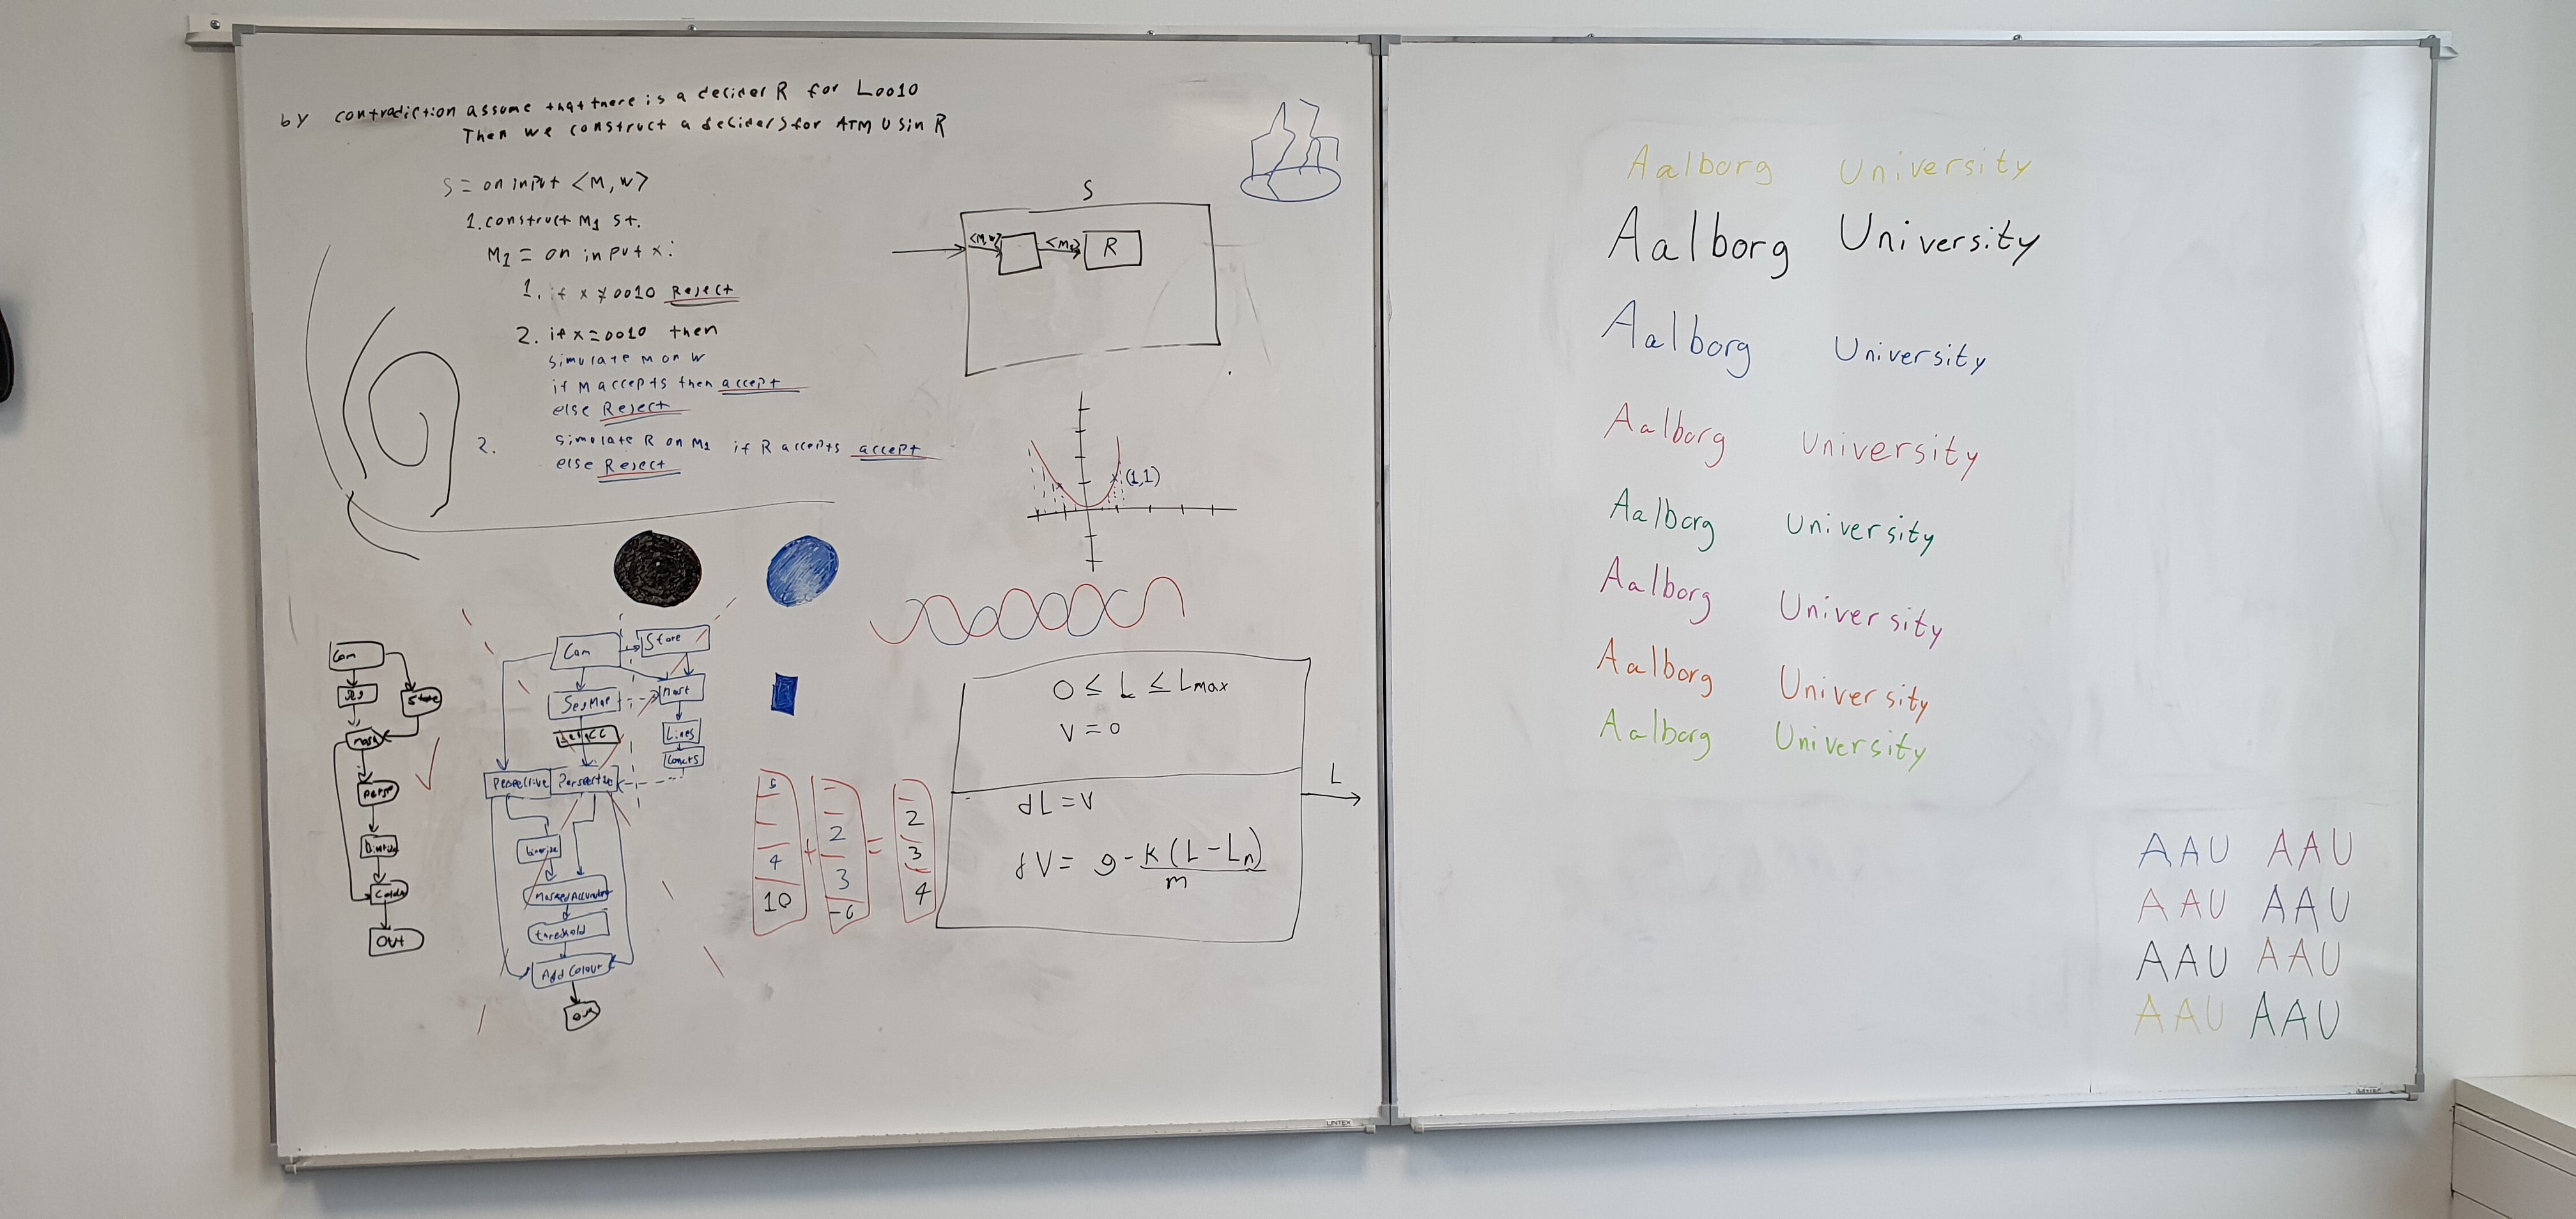 by contradiction assume that there is a decider R for L0010
Then we construct a decider S for ATM Usin R
S = on input <M, w>
1. construct M1 st.
M1 = on input x:
1. if x ≠ 0010 Reject
2. if x = 0010 then
simulate M on w
if M accepts then accept
else Reject
2. simulate R on M1 if R accepts accept
else Reject
S
<M, w>
R
(1,1)
Cam
Store
Mask
Out
Cam
Store
SegMap
Lines
Perspective
threshold
Add Colour
Out
4
10
+
2
3
-6
=
2
3
4
0 ≤ L ≤ Lmax
V = 0
dL = V
dV = g - k (L - Ln)
m
L
LINTEX
Aalborg University
Aalborg University
Aalborg University
Aalborg University
Aalborg University
Aalborg University
Aalborg University
Aalborg University
AAU AAU
AAU AAU
AAU AAU
AAU AAU